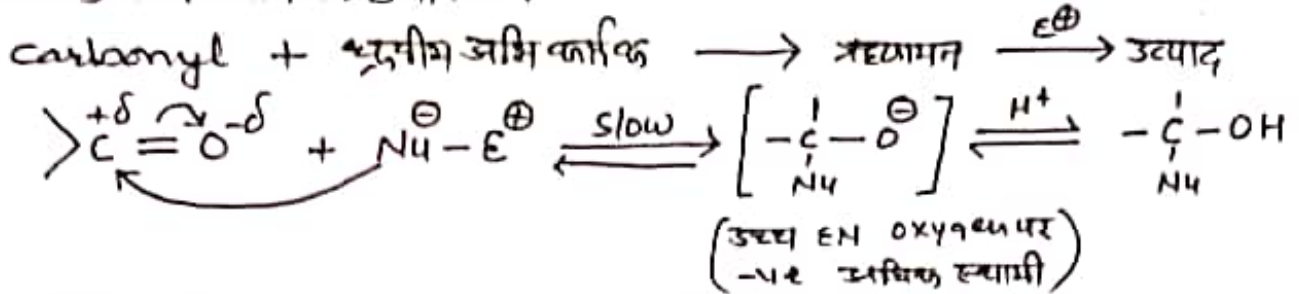 carbonyl + ध्रुवीय अभिकर्मक ⟶ ऋणायन —E⊕→ उत्पाद
>C+δ = O-δ + Nu⊖ – E⊕ ⇌ (Slow) [ – C – O⊖ ] ⇌ (H+) – C – OH
Nu Nu
(उच्च EN oxygen पर
-ve अधिक स्थायी)